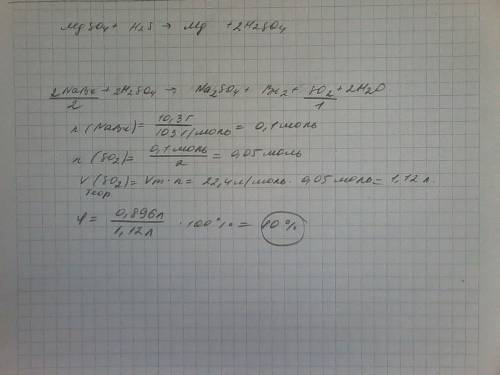 MgSO4 + H2S → Mg + 2H2SO4
2NaBr/2 + 2H2SO4 → Na2SO4 + Br2 + SO2/1 + 2H2O
n(NaBr) = 10,3г/103г/моль = 0,1моль
n(SO2) = 0,1моль/2 = 0,05моль
V(SO2)теор = Vm·n = 22,4л/моль · 0,05моль = 1,12л.
φ = 0,896л/1,12л · 100% = 80%